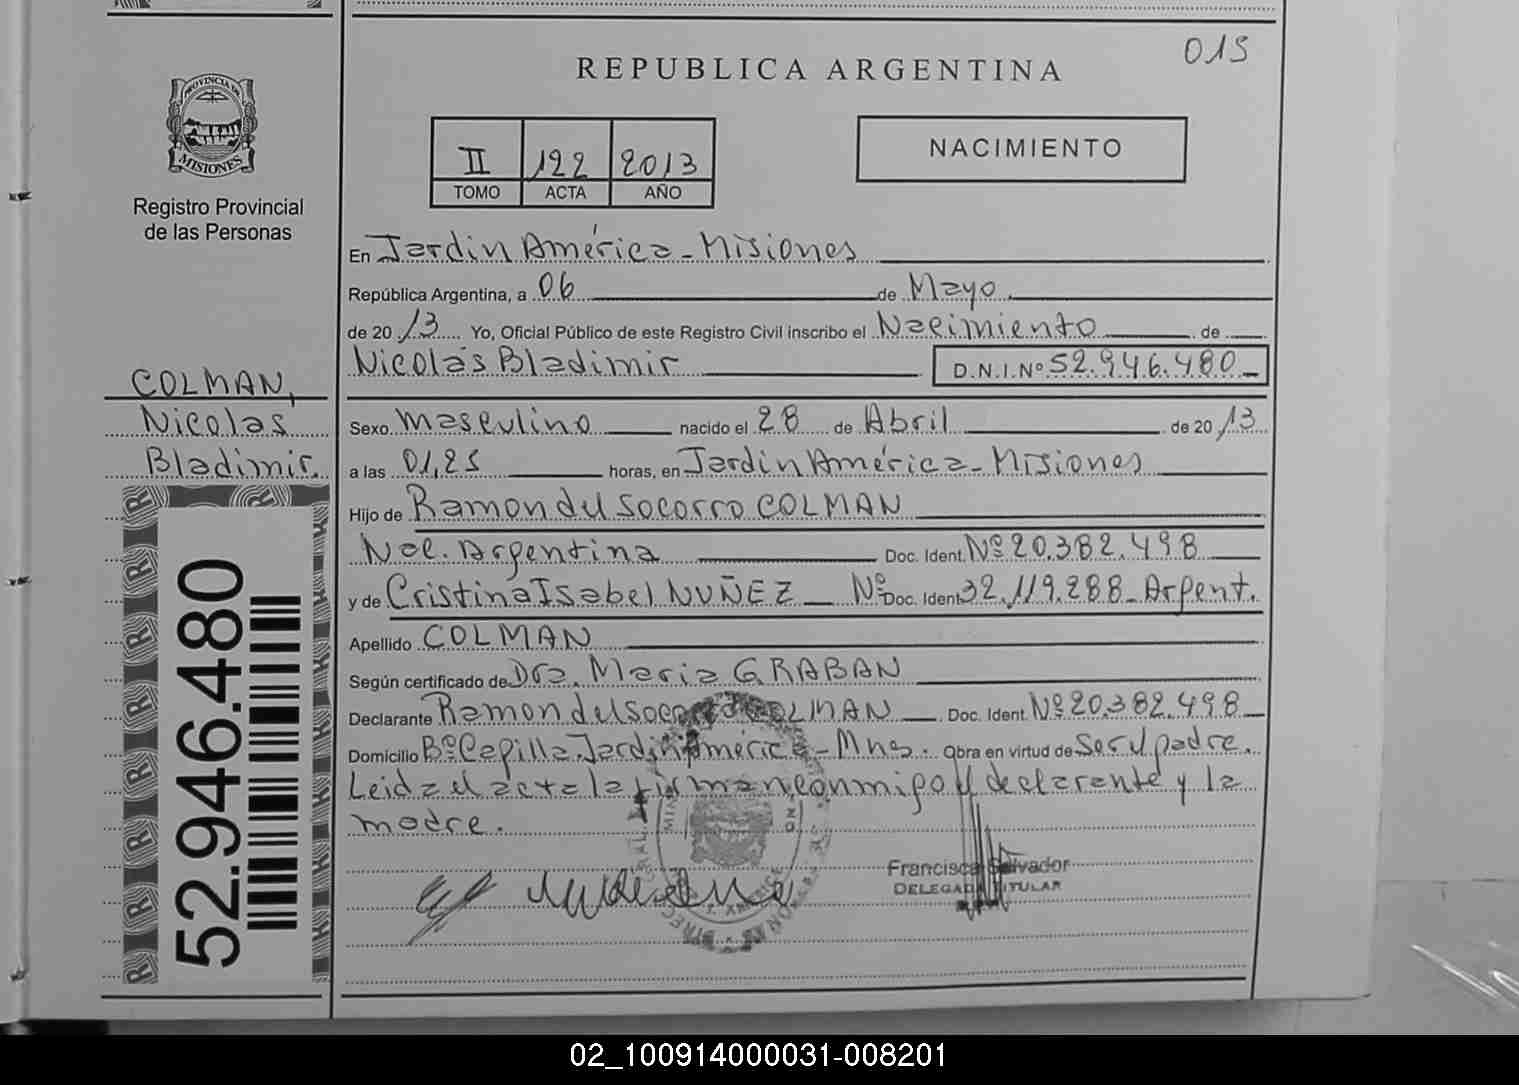 015
REPUBLICA ARGENTINA
PROVINCIA DE
MISIONES
Registro Provincial
de las Personas
II 122 2013
TOMO ACTA AÑO
NACIMIENTO
En Jardín América - Misiones
República Argentina, a 06 de Mayo.
de 20 13 Yo, Oficial Público de este Registro Civil inscribo el Nacimiento de
Nicolás Bladimir D.N.I.Nº 52.946.480
COLMAN,
Nicolas
Bladimir.
Sexo masculino nacido el 28 de Abril de 20 13
a las 01,25 horas, en Jardín América - Misiones
Hijo de Ramon del Socorro COLMAN
Nac. Argentina Doc. Ident. Nº 20.382.498
y de Cristina Isabel NUÑEZ Nº Doc. Ident. 32.119.288 - Argent.
Apellido COLMAN
Según certificado de Dra. Maria GRABAN
Declarante Ramon del Socorro COLMAN Doc. Ident. Nº 20.382.498
Domicilio Bº Capilla Jardín América - Mnes. Obra en virtud de ser el padre.
Leida el acta la firman conmigo el declarante y la
madre.
Francisca Salvador
DELEGADA TITULAR
52.946.480
02_100914000031-008201